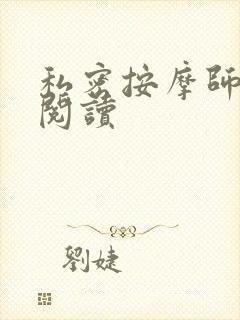 私密按摩師
閱讀
劉婕